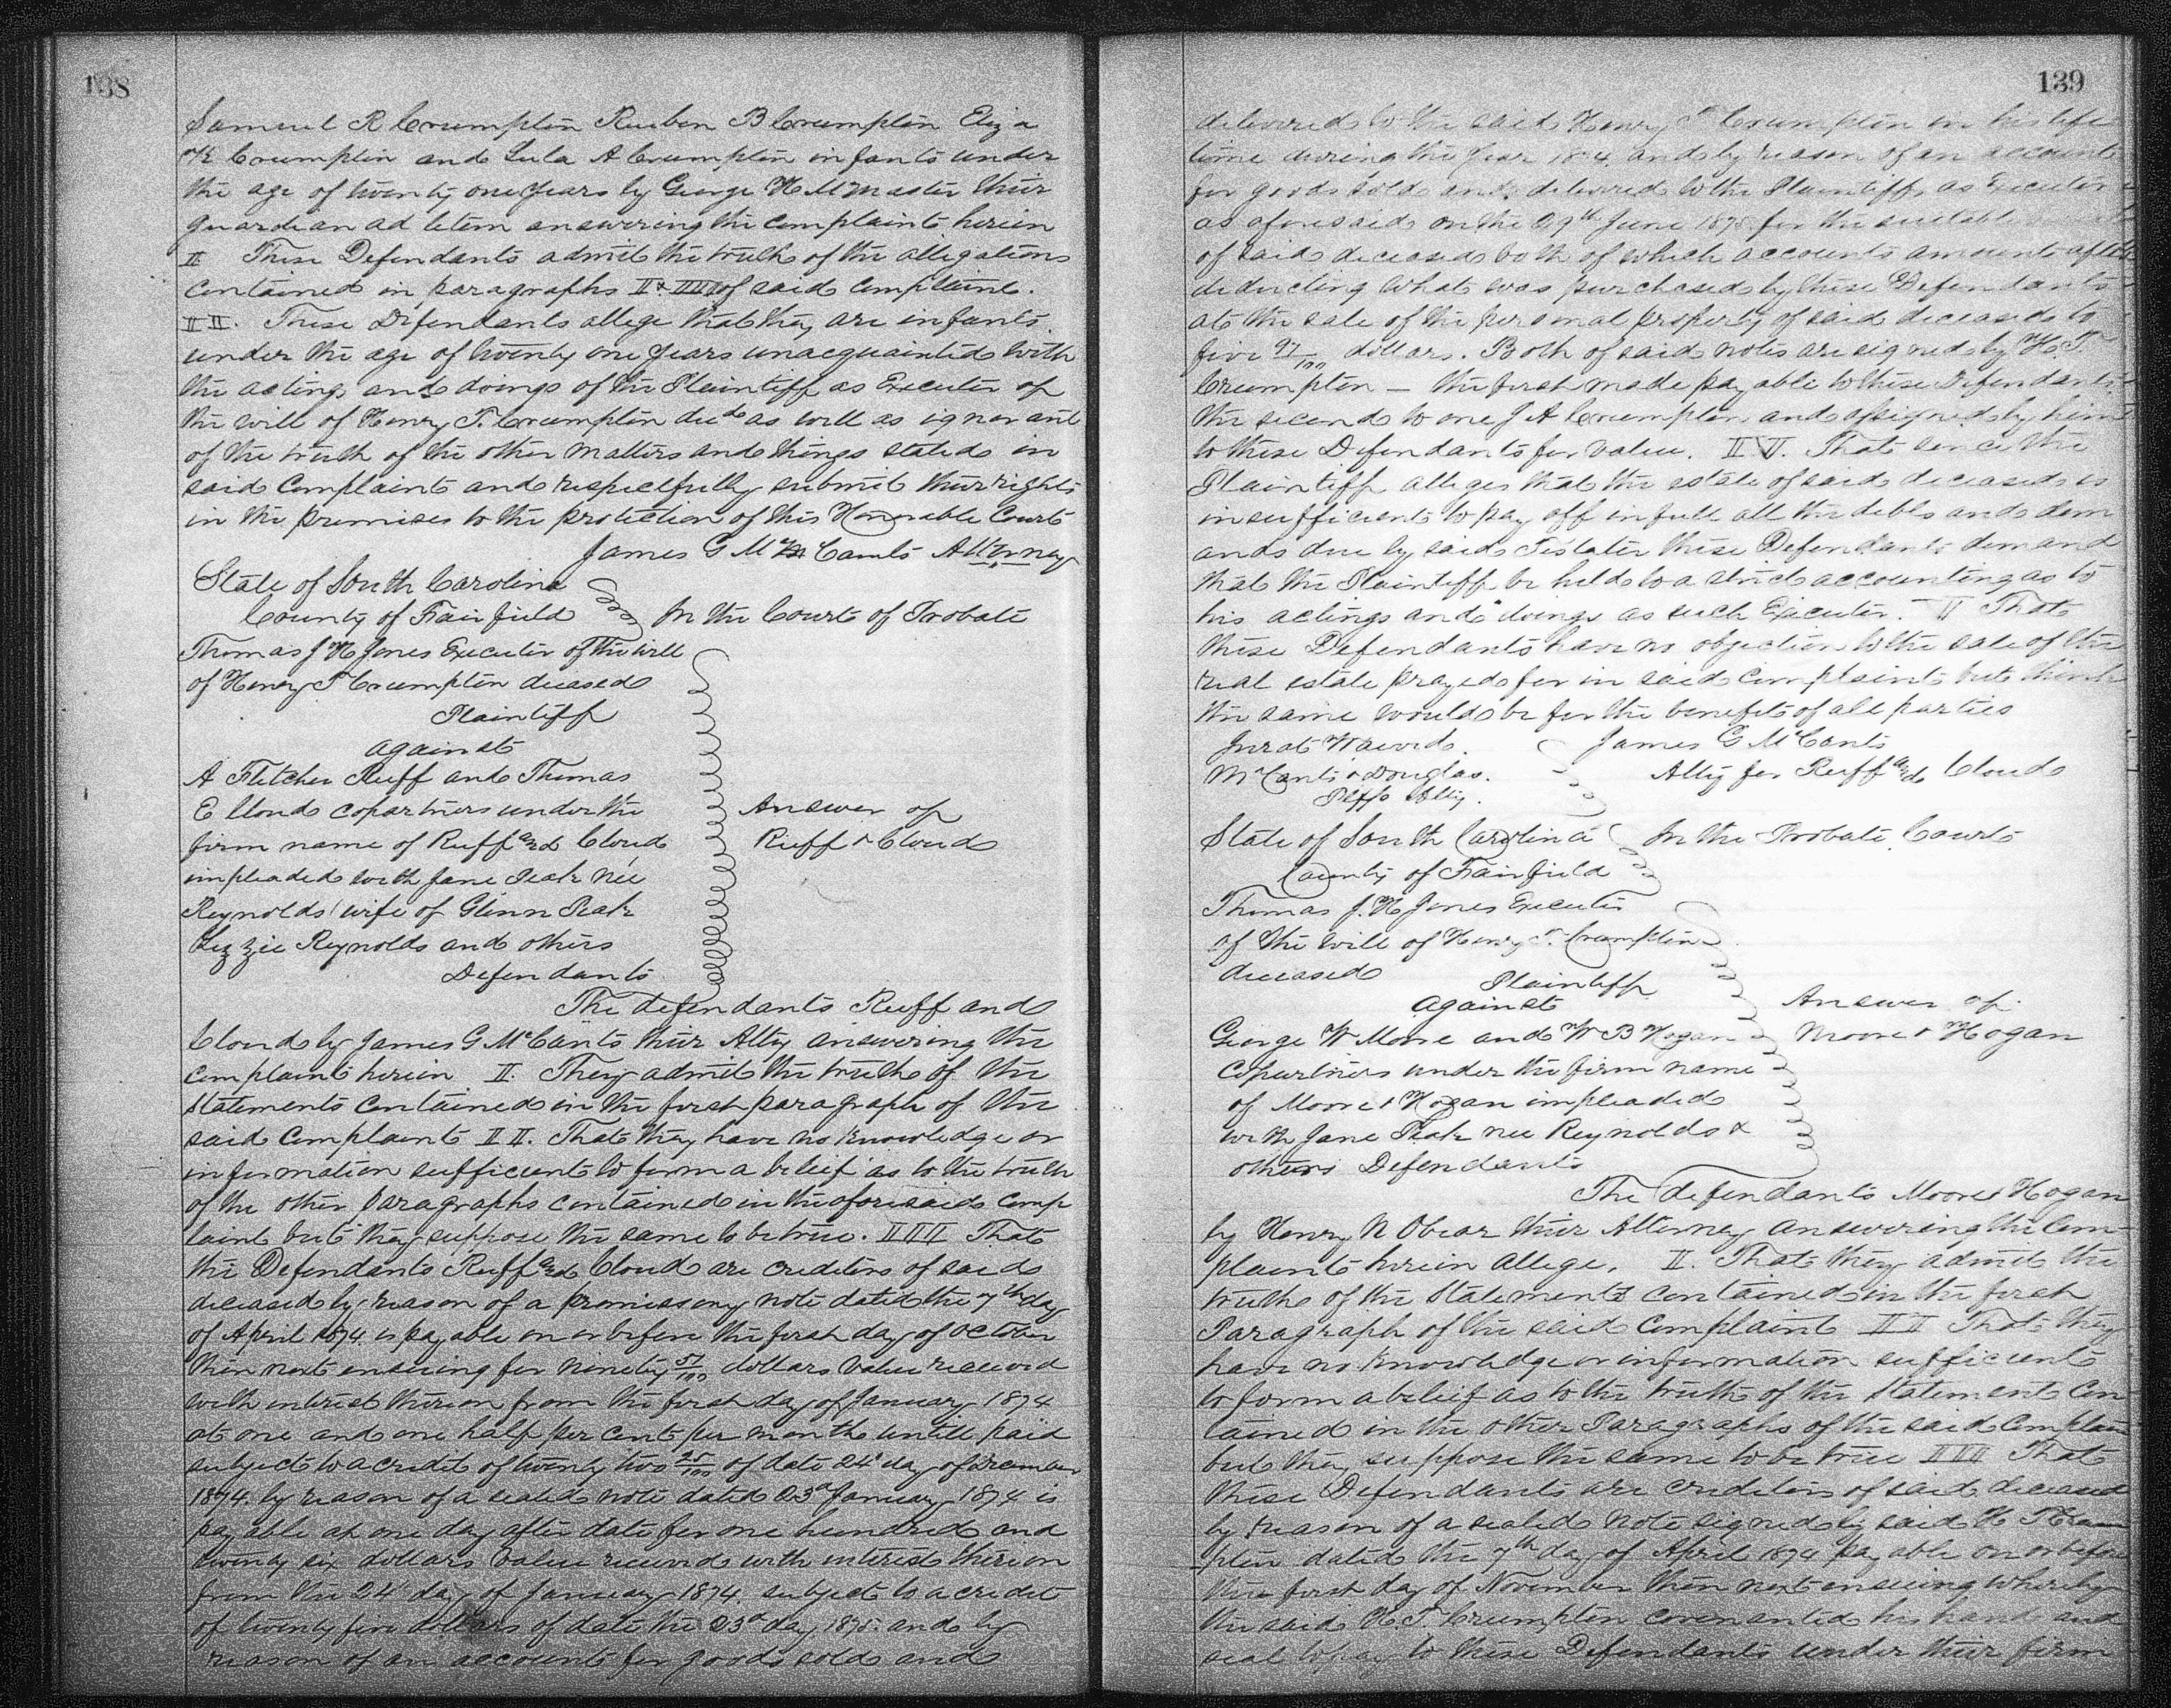 138
Samuel R Crumpton Reuben B Crumpton Eliza
Crumpton and Lula A Crumpton infants under
the age of twenty one years by George H McMaster their
guardian ad letem answering the complaint herein
II These Defendants admit the truth of the allegations
contained in paragraphs of said Complaint.
II II. These Defendants allege that they are infants
under the age of twenty one years unacquainted with
the actings and doings of the Plaintiff as Executor of
the will of Henry T. Crumpton decd as well as ignorant
of the truth of the other matters and things stated in
said Complaint and respectfully submit their rights
in the premises to the protection of this Honorable Court
James G McCants Attorney
State of South Carolina
County of Fairfield In the Court of Probate
Thomas J H Jones Executor of the will
of Henry T Crumpton deceased
Plaintiff
against
A Fletcher Ruff and Thomas
E Cloud copartners under the
firm name of Ruff and Cloud
impleaded with Jane Peak nee
Reynolds wife of Glenn Peak
Lizzie Reynolds and others
Defendants
Answer of
Ruff & Cloud
The defendants Ruff and
Cloud by James G McCants their Atty answering the
complaint herein II. They admit the truth of the
statements contained in the first paragraph of the
said Complaint II II. That they have no knowledge or
information sufficient to form a belief as to the truth
of the other paragraphs contained in the aforesaid Comp
laint but they suppose the same to be true. II III That
the Defendants Ruff and Cloud are creditors of said
deceased by reason of a promissory note dated the 7th day
of April 1874 is payable on or before the first day of October
then next ensuing for ninety 51/100 dollars value received
with interest thereon from the first day of January 1874
at one and one half per cent per month untill paid
subject to a credit of twenty two 25/100 of date 24' day of December
1874. by reason of a sealed note dated 23d January 1874 is
payable at one day after date for one hundred and
twenty six dollars value received with interest thereon
from the 24' day of January 1874. subject to a credit
of twenty five dollars of date the 23d day 1875. and by
reason of an account for goods sold and
139
delivered to the said Henry T Crumpton in his life
time during the year 1874 and by reason of an account
for goods sold and delivered to the Plaintiff as Executor
as aforesaid on the 29th June 1875 for the suitable
of said deceased both of which accounts amount after
deducting what was purchased by these Defendants
at the sale of the personal property of said deceased to
five 97/100 dollars. Both of said notes are signed by H.T.
Crumpton — the first made payable to these Defendants
the second to one J A Crumpton and assigned by him
to these Defendants for value. II V. That since the
Plaintiff alleges that the estate of said deceased is
insufficient to pay off in full all the debts and dem
ands due by said Testator these Defendants demand
that the Plaintiff be held to a strict accounting as to
his actings and doings as such Executor. V That
these Defendants have no objection to the sale of the
real estate prayed for in said Complaint but think
the same would be for the benefit of all parties
Jurat Waived. James G McCants
McCants & Douglas. Atty for Ruff and Cloud
Plffs Atty.
State of South Carolina In the Probate Court
County of Fairfield
Thomas J. H Jones Executor
of the will of Henry T. Crumpton
deceased Plaintiff
against
George W Moore and W B Hogan
Copartners under the firm name
of Moore & Hogan impleaded
with Jane Peak nee Reynolds &
others Defendants
Answer of
Moore & Hogan
The defendants Moore & Hogan
by Henry N Obear their Attorney answering the Com
plaint herein allege. II. That they admit the
truth of the Statements contained in the first
Paragraph of the said Complaint II II That they
have no knowledge or information sufficient
to form a belief as to the truth of the Statements Con
tained in the other Paragraphs of the said Complain
but they suppose the same to be true II III That
these Defendants are creditors of said deceased
by reason of a sealed note signed by said H T Crum
pton dated the 7th day of April 1874 payable on or before
the first day of November then next ensuing whereby
the said H. T. Crumpton covenanted his hand and
seal to pay to these Defendants under their firm